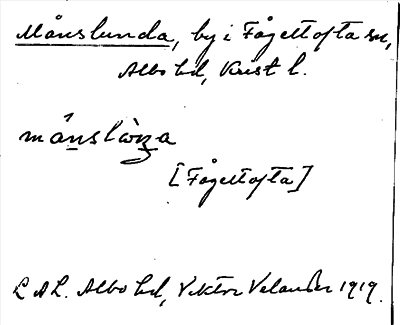 Månslunda, by i Fågeltofta sn,
Albo hd, Krist l.
[Fågeltofta]
L A L. Albo hd, Viktor Velander 1919.